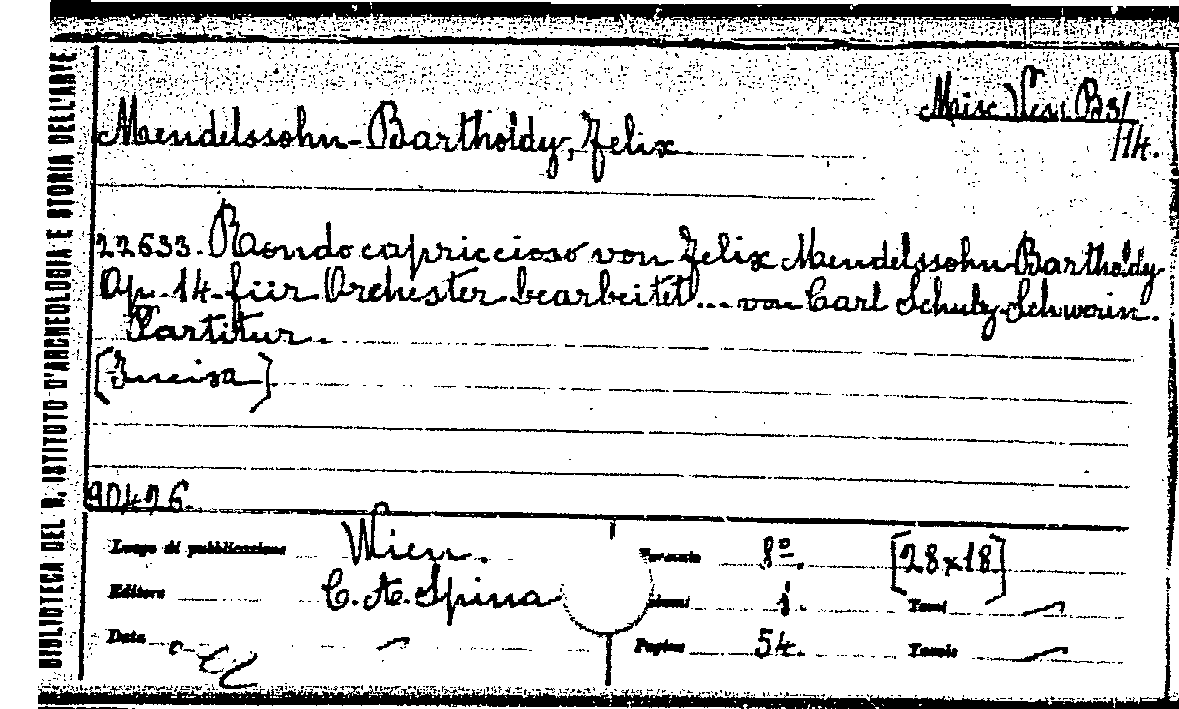 BIBLIOTECA DEL R. ISTITUTO D'ARCHEOLOGIA E STORIA DELL'ARTE
Misc. Ven. B3/
114.
Mendelssohn-Bartholdy, Felix
22633. Rondo capriccioso von Felix Mendelssohn-Bartholdy
Op. 14 für Orchester bearbeitet... von Carl Schulz-Schwerin.
Partitur.
[Incisa]
90426.
Luogo di pubblicazione Wien. Formato 8º. [28x18]
Editore C. A. Spina 1. Tomi
Data Pagine 54. Tavole